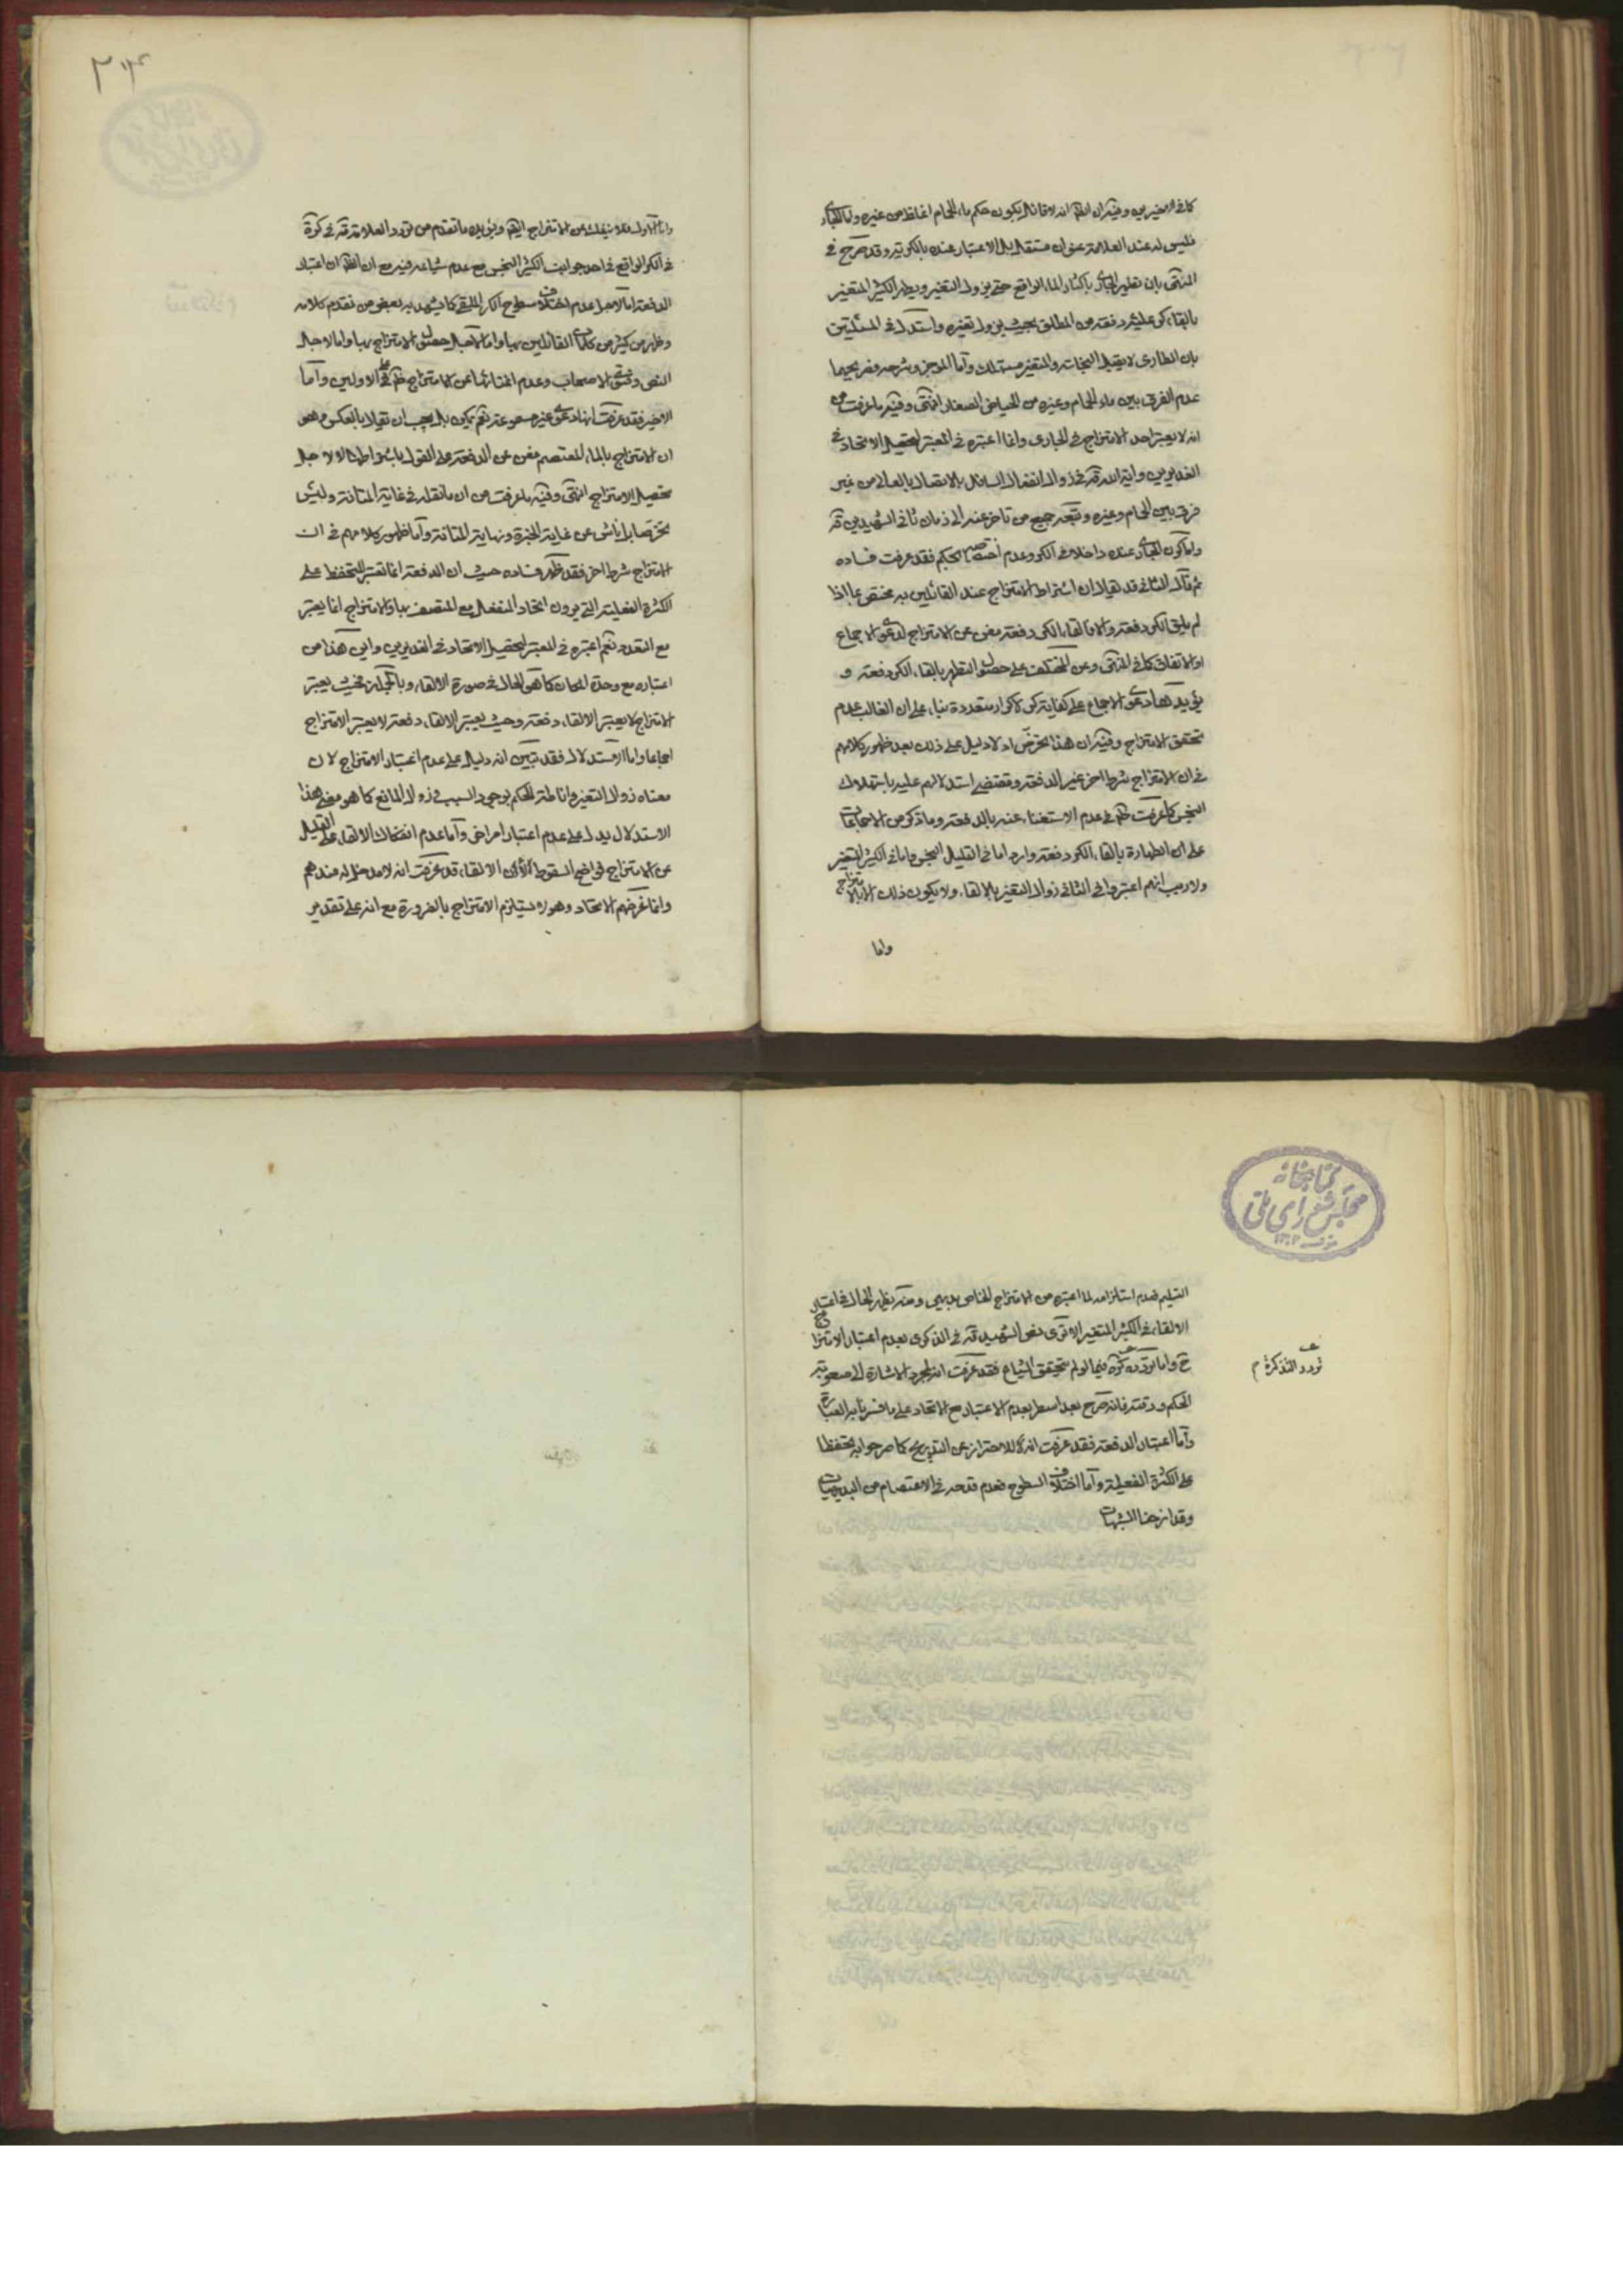 كما في الاخيرين وفيه ان الظ انه لا قائل بكون حكم ماء الحمام اغلظ من غيره واما الجاري
فليس له عند العلامة عنوان مستقل بل الاعتبار عنده بالكرية وقد صرح في
المنتهى بان تطهير الجاري باكثار الماء الواقع حتى يزول التغير ويطهر الكثير المتغير
بالقاء كر عليه دفعة من المطلق بحيث يزول تغيره واستدل في المسئلتين
بان الطارى لا يقبل النجاسة والمتغير مستهلك واما الموجز وشرحه فصريحهما
عدم الفرق بين ماء الحمام وغيره من الحياض الصغار انتهى وفيه ما عرفت من
انه لا يعتبر احد الامتزاج في الجاري وانما اعتبره في المعتبر لتحصيل الاتحاد في
الغديرين وانفعال السافل بالاتصال بالعالى من غير
فرق بين الحمام وغيره وتبعه جميع من تاخر عنه الى زمان ثاني الشهيدين قه
واما كون الجاري عنده داخلا في الكر وعدم اختصاصه بالحكم فقد عرفت فساده
ثم قال الثاني قد يقال ان اشتراط الامتزاج عند القائلين به مختص بما اذا
لم يلق الكر دفعة والا فالقاء الكر دفعة مغن عن الامتزاج لدعوى الاجماع
او الاتفاق كما في المنتهى وعن المختلف على حصول التطهر بالقاء الكر دفعة و
يؤيدها دعوى الاجماع على كفاية كر كر لاكرار متعددة بناء على ان الغالب عدم
تحقق الامتزاج وفيه ان هذا تخرص اذ لا دليل على ذلك بعد ظهور كلامهم
في ان الامتزاج شرط اخر غير الدفعة ومقتضى استدلالهم عليه باستهلاك
النجس كما عرفت ظ في عدم الاستغناء عنه بالدفعة وما ذكر من الاجماعات
على ان الطهارة بالقاء الكر دفعة وارد اما في القليل النجس واما في الكثير المتغير
ولا ريب انهم اعتبروا في الثاني زوال التغير بالالقاء ولا يكون ذلك الا بالامتزاج
واما
٣٠٤
واما الاول فلا ينفك عن الامتزاج ايضا ويؤيده ما تقدم من تردد العلامة قه في كرة
في الكر الواقع في احد جوانب الكثير النجس مع عدم شياعه فيه مع ان الظ ان اعتبار
الدفعة اما لاجل عدم اختلاف سطوح الكر الملقى كما يشهد به بعض من تقدم كلامه
وظاهر من كثير من كلمات القائلين بها واما لاجل حصول الامتزاج بها واما لاجل
النص وفتوى الاصحاب وعدم اغنائها عن الامتزاج ظ على الاولين واما
الاخير فقد عرفت انها دعوى غير مسموعة نعم يمكن بل يجب ان يقال بالعكس وهو
ان الامتزاج بالماء المعتصم مغن عن الدفعة على القول باشتراطها لا لاجل
تحصيل الامتزاج انتهى وفيه ما عرفت من ان ما نقله في غاية المتانة وليس
تخرصا بل ناش عن غاية الخبرة ونهاية المتانة واما ظهور كلامهم في ان
الامتزاج شرط اخر فقد ظهر فساده حيث ان الدفعة انما تعتبر للتحفظ على
الكثرة الفعلية التي يرون اتحاد المنفعل مع المتصف بها والامتزاج انما يعتبر
مع التعدد نعم اعتبره في المعتبر لتحصيل الاتحاد في الغديرين واين هذا من
اعتباره مع وحدة المكان كما هو الحال في صورة الالقاء وبالجملة فحيث يعتبر
الامتزاج لا يعتبر الالقاء دفعة وحيث يعتبر الالقاء دفعة لا يعتبر الامتزاج
اجماعا واما الاستدلال فقد تبين انه دليل على عدم اعتبار الامتزاج لان
معناه زوال التغير واناطة الحكم بوجود السبب وزوال المانع كما هو مقتضى هذا
الاستدلال يدل على عدم اعتبار امر اخر واما عدم انفكاك الالقاء على القليل
عن الامتزاج فواضح السقوط الالقاء قد عرفت انه لا مدخل له عندهم
وانما غرضهم الاتحاد وهو لا يستلزم الامتزاج بالضرورة مع انه على تقدير
كتابخانه
مجلس شورای ملی
التسليم فعدم استلزامه لما اعتبره من الامتزاج الخاص بديهى ومنه يظهر الحال في اعتبار
الالقاء في الكثير المتغير الا ترى نص الشهيد قه في الذكرى بعدم اعتبار الامتزاج
ح واما تردده كرة فيما لو لم يتحقق الشياع فقد عرفت انه لمجرد الاشارة الى صعوبة
الحكم ودقته فانه صرح بعد اسطر بعدم الاعتبار مع الاتحاد على ما فسرنا به العبارة
واما اعتبار الدفعة فقد عرفت انه للاحتراز عن التدريج كما صرحوا به تحفظا
على الكثرة الفعلية واما اختلاف السطوح فعدم قدحه في الاعتصام من البديهيات
وقد ازحنا الشبهات
تردد التذكرة م